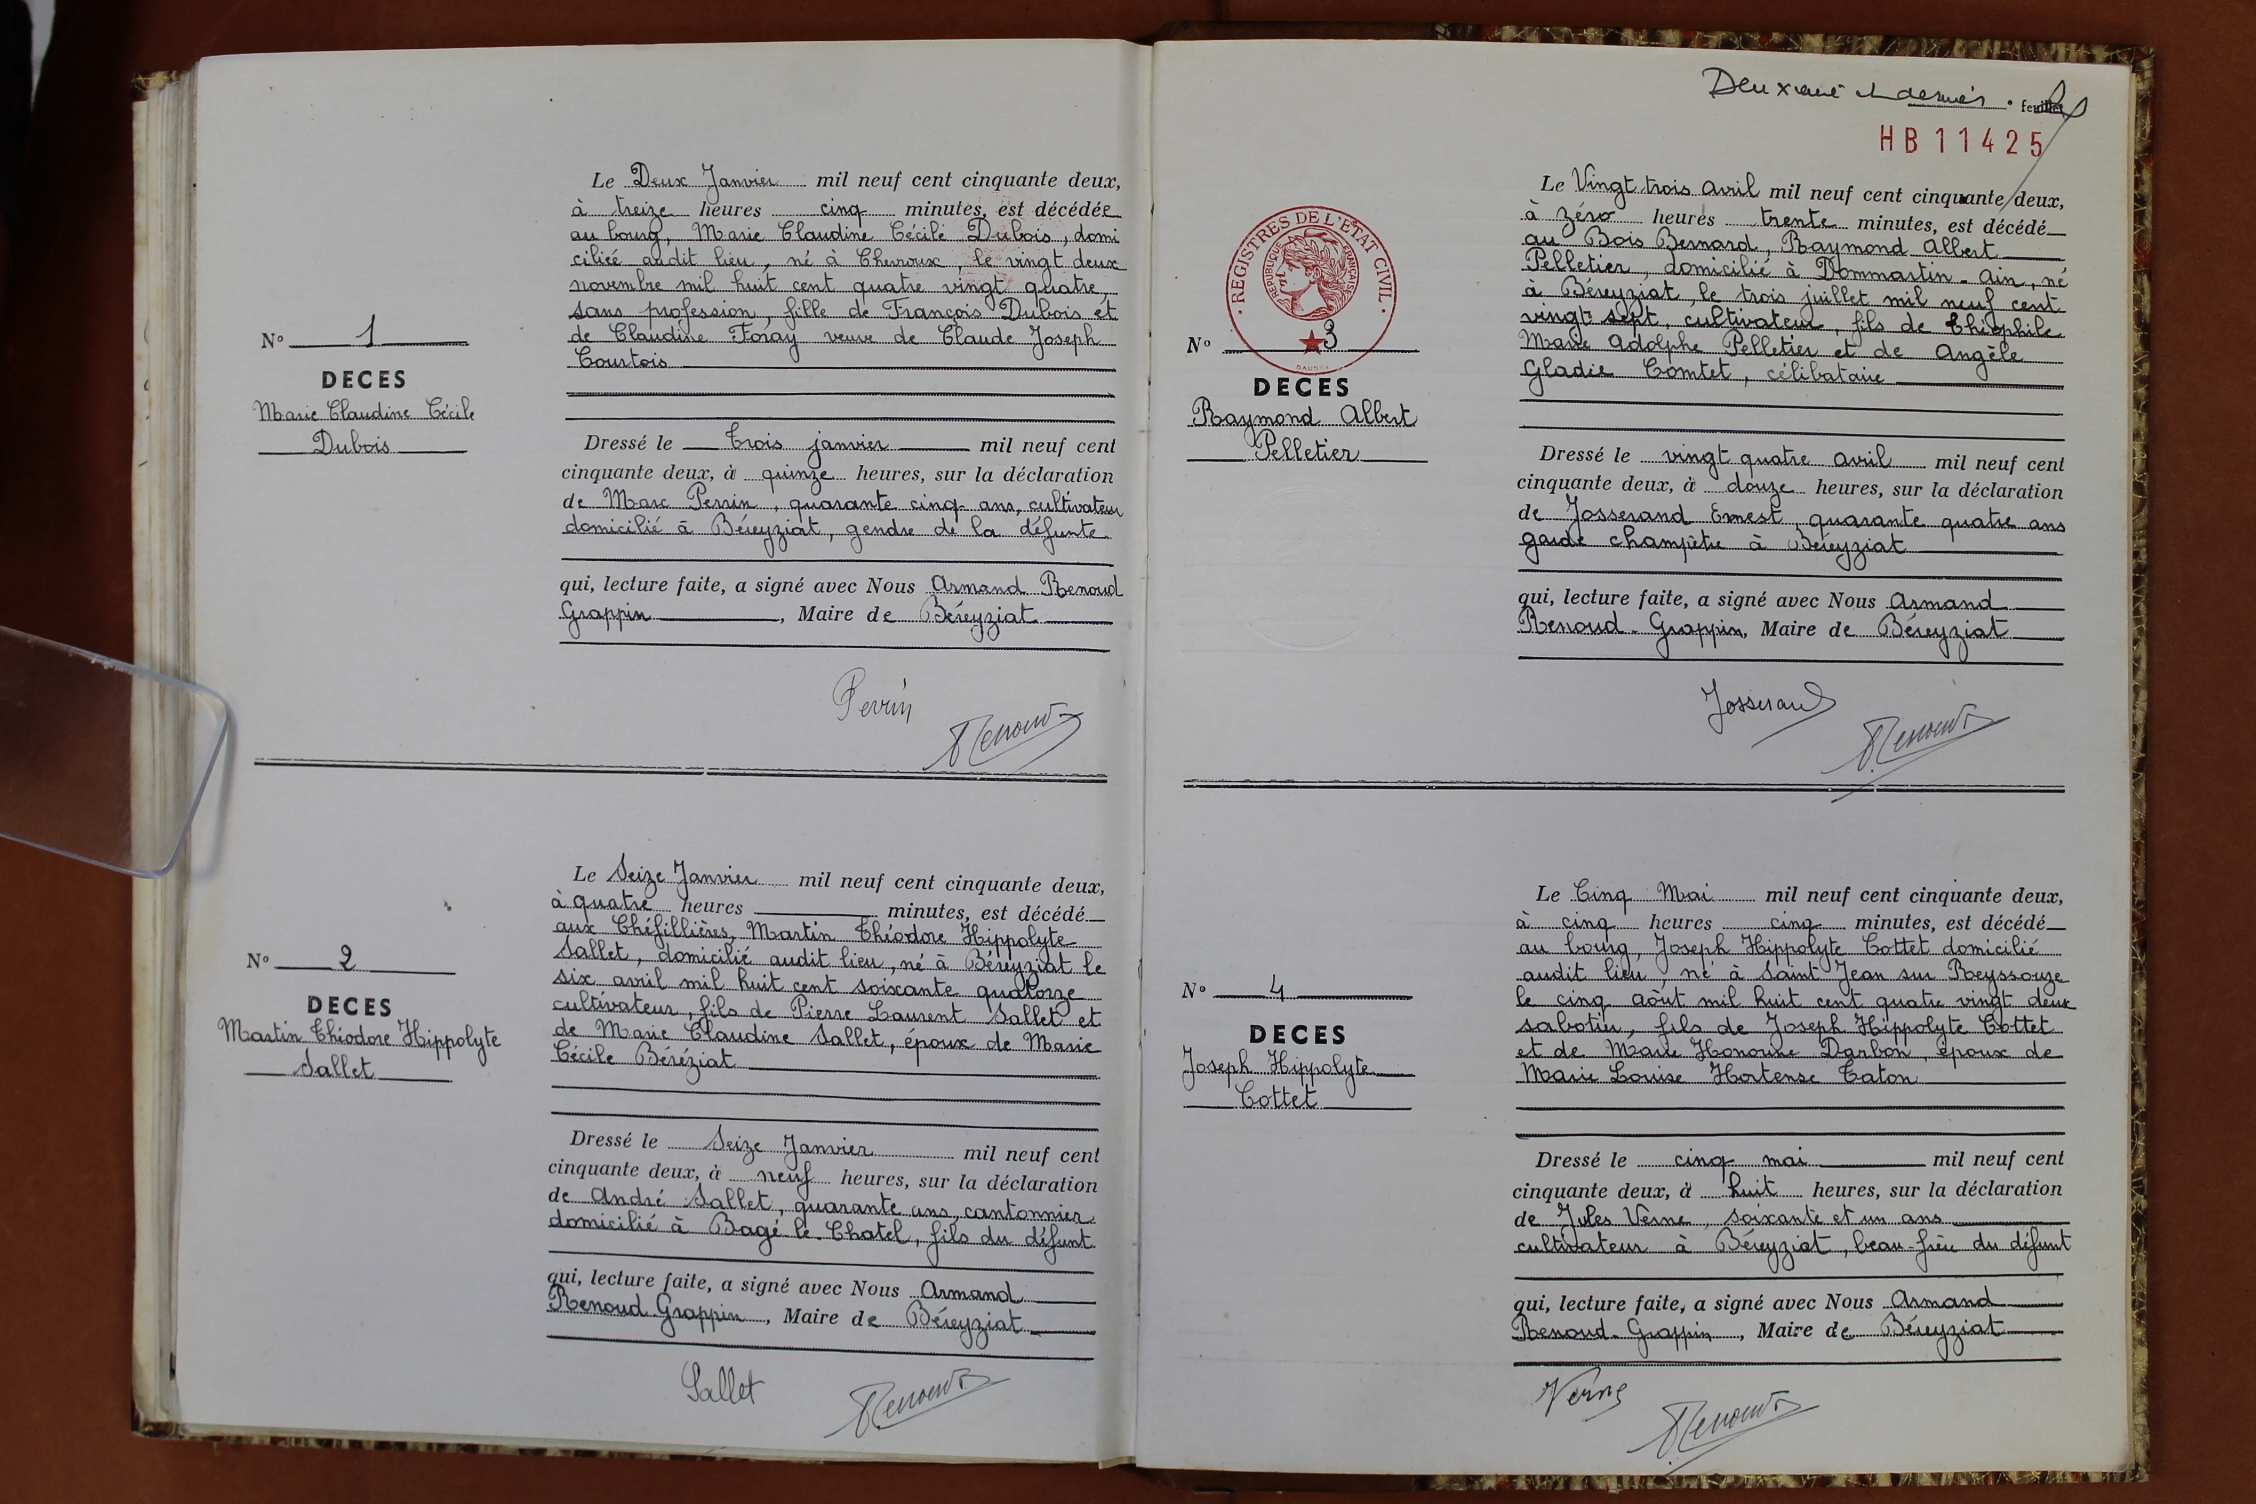 Le Deux Janvier mil neuf cent cinquante deux,
à treize heures cinq minutes, est décédée
au bourg, Marie Claudine Cécile Dubois, domi
ciliée audit lieu, né à Chevroux, le vingt deux
novembre mil huit cent quatre vingt quatre,
sans profession, fille de François Dubois et
de Claudine Foray veuve de Claude Joseph
Courtois
Nº 1
DECES
Marie Claudine Cécile
Dubois
Dressé le trois janvier mil neuf cent
cinquante deux, à quinze heures, sur la déclaration
de Marc Perrin, quarante cinq ans, cultivateur
domicilié à Béreyziat, gendre de la défunte
qui, lecture faite, a signé avec Nous Armand Renoud
Grappin, Maire de Béreyziat
Perrin
Renoud
Le Seize Janvier mil neuf cent cinquante deux,
à quatre heures minutes, est décédé
aux Chéfillières, Martin Théodore Hippolyte
Sallet, domicilié audit lieu, né à Béreyziat le
six avril mil huit cent soixante quatorze
cultivateur, fils de Pierre Laurent Sallet et
de Marie Claudine Sallet, époux de Marie
Cécile Béréziat
Nº 2
DECES
Martin Théodore Hippolyte
Sallet
Dressé le Seize Janvier mil neuf cent
cinquante deux, à neuf heures, sur la déclaration
de André Sallet, quarante ans, cantonnier
domicilié à Bagé-le-Chatel, fils du défunt
qui, lecture faite, a signé avec Nous Armand
Renoud Grappin, Maire de Béreyziat
Sallet
Renoud
Deuxième et dernier feuillet
HB11425
Le Vingt trois avril mil neuf cent cinquante deux,
à zéro heures trente minutes, est décédé
au Bois Bernard, Raymond Albert
Pelletier, domicilié à Dommartin-Ain, né
à Béreyziat, le trois juillet mil neuf cent
vingt sept, cultivateur, fils de Théophile
Marie Adolphe Pelletier et de Angèle
Gladie Comtet, célibataire
REGISTRES DE L'ÉTAT CIVIL
RÉPUBLIQUE FRANÇAISE
Nº 3
DECES
Raymond Albert
Pelletier
Dressé le vingt quatre avril mil neuf cent
cinquante deux, à douze heures, sur la déclaration
de Josserand Ernest, quarante quatre ans
garde champêtre à Béreyziat
qui, lecture faite, a signé avec Nous Armand
Renoud-Grappin, Maire de Béreyziat
Josserand
Renoud
Le Cinq Mai mil neuf cent cinquante deux,
à cinq heures cinq minutes, est décédé
au bourg, Joseph Hippolyte Cottet domicilié
audit lieu, né à Saint Jean sur Reyssouze
le cinq août mil huit cent quatre vingt deux
sabotier, fils de Joseph Hippolyte Cottet
et de Marie Honorine Darbon, époux de
Marie Louise Hortense Caton
Nº 4
DECES
Joseph Hippolyte
Cottet
Dressé le cinq mai mil neuf cent
cinquante deux, à huit heures, sur la déclaration
de Jules Verne, soixante et un ans
cultivateur à Béreyziat, beau-frère du défunt
qui, lecture faite, a signé avec Nous Armand
Renoud-Grappin, Maire de Béreyziat
Verne
Renoud